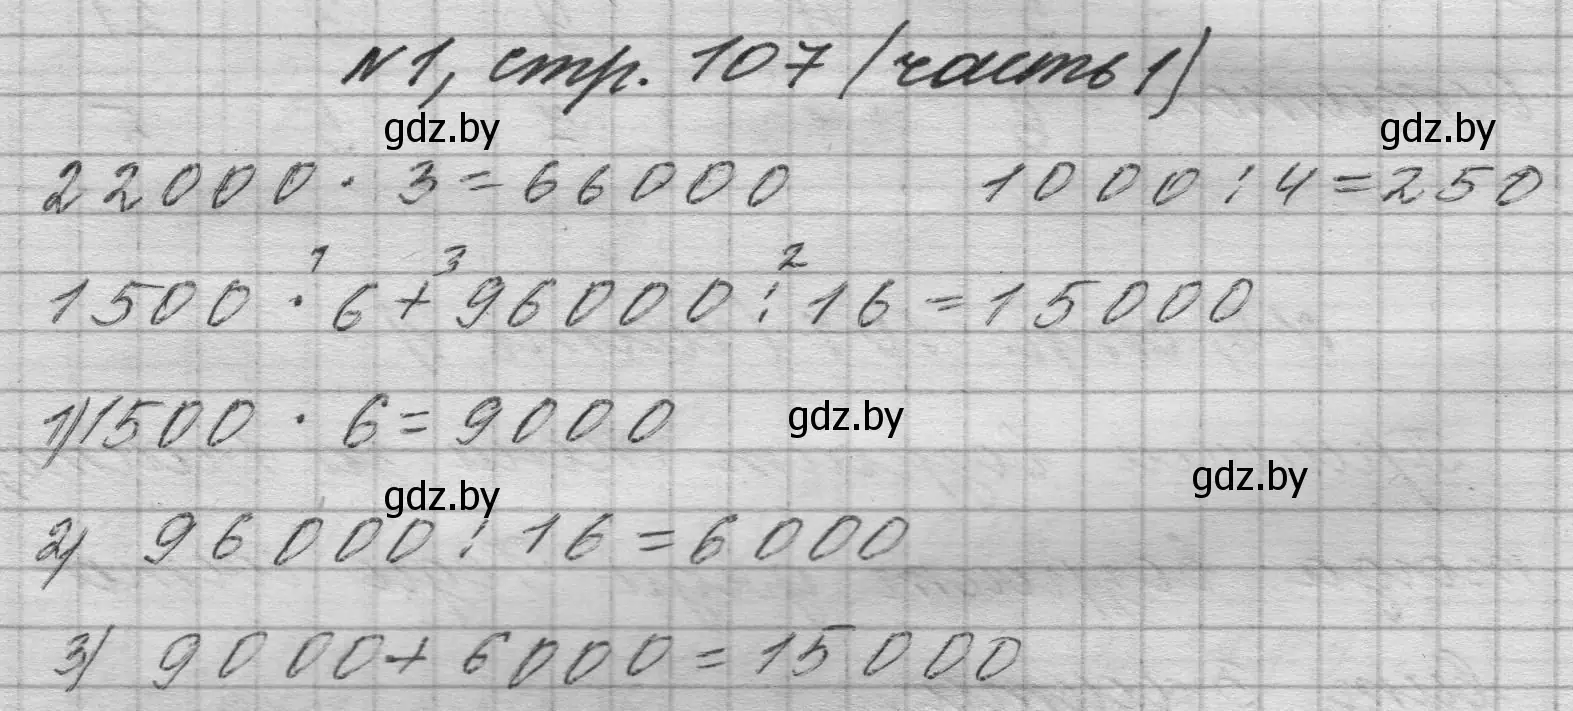 N1, стр. 107 (часть 1)
gdz.by gdz.by
22000 · 3 = 66000 1000 : 4 = 250
1 3 2
1500 · 6 + 96000 : 16 = 15000
1) 1500 · 6 = 9000 gdz.by
gdz.by gdz.by
2) 96000 : 16 = 6000
3) 9000 + 6000 = 15000